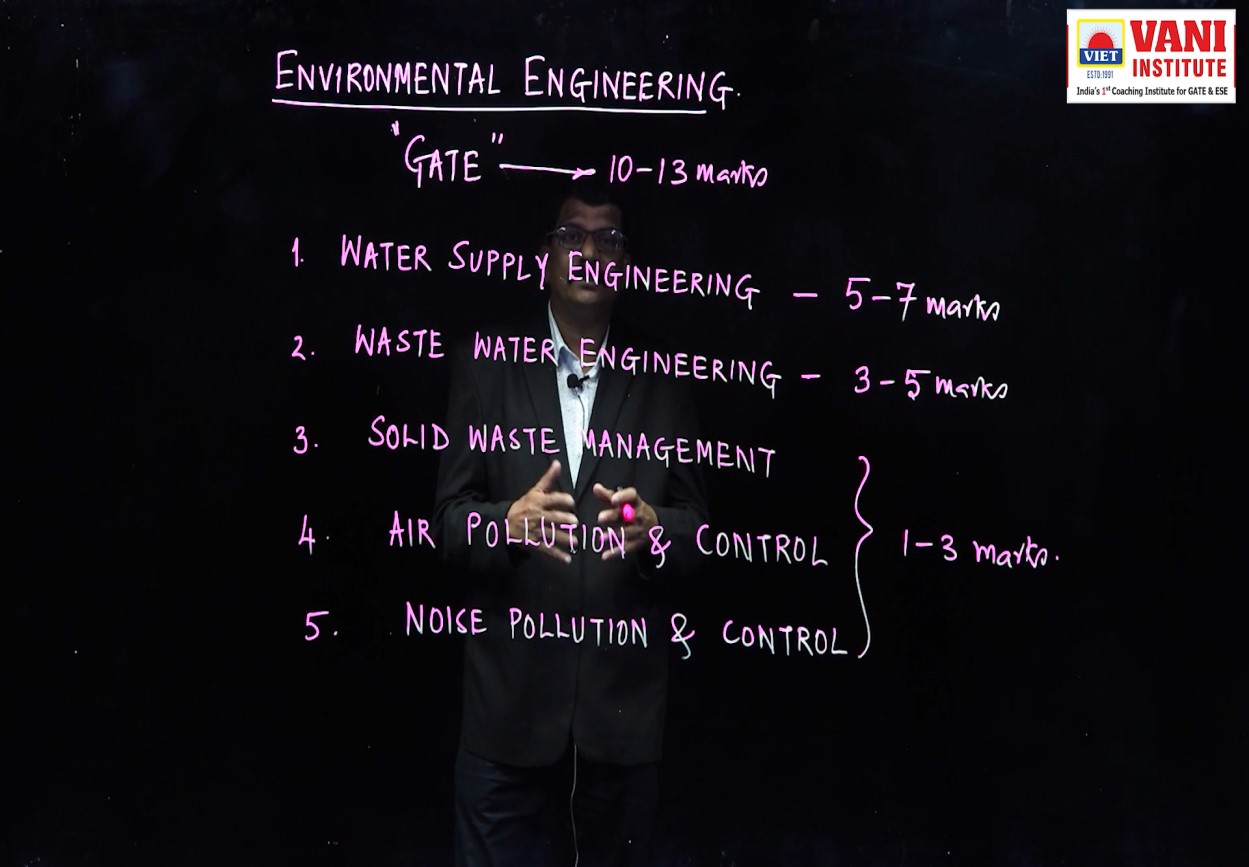 VIET
ESTD:1991
VANI
INSTITUTE
India's 1st Coaching Institute for GATE & ESE
ENVIRONMENTAL ENGINEERING.
"GATE" → 10-13 marks
1. WATER SUPPLY ENGINEERING - 5-7 marks
2. WASTE WATER ENGINEERING - 3-5 marks
3. SOLID WASTE MANAGEMENT
4. AIR POLLUTION & CONTROL
1-3 marks.
5. NOISE POLLUTION & CONTROL